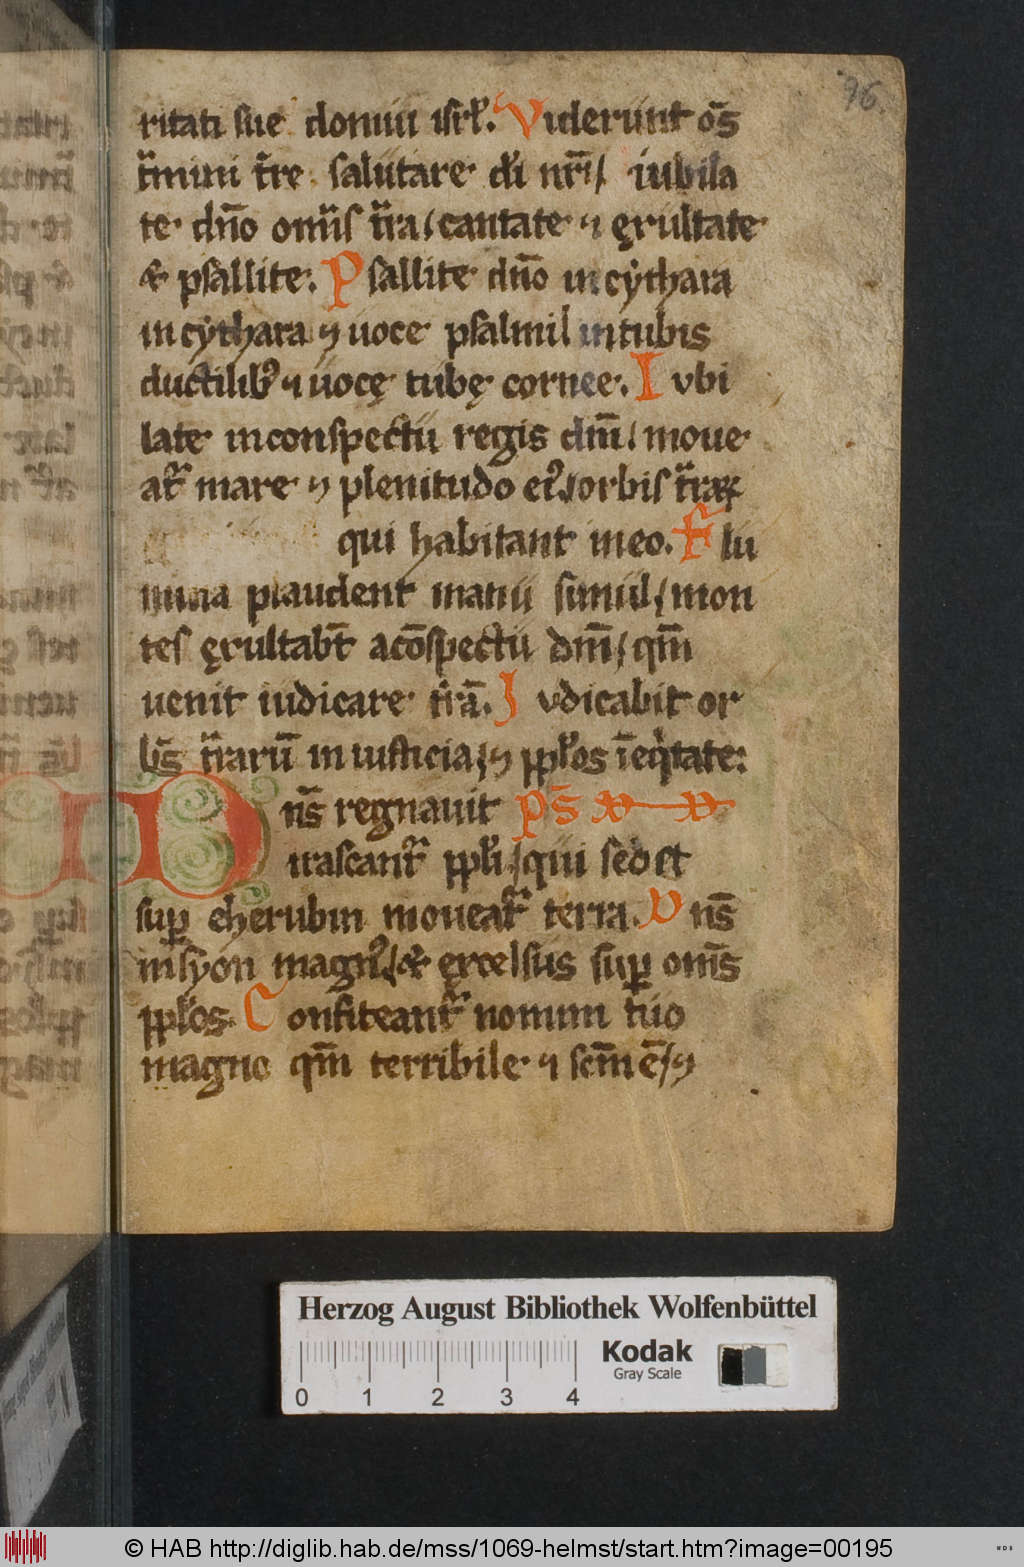 96.
ritati sue domui isrl̄. Viderunt om̄s
t̄mini t̄re salutare dī nr̄i / iubila
te dn̄o omīs t̄ra / cantate ⁊ ęxultate
& psallite. Psallite dn̄o in cẏthara
in cẏthara ⁊ uoce psalmi / in tubis
ductilibꝰ ⁊ uocę tubę cornee. Iubi
late in conspectu regis dn̄i / moue
at᷑ mare ⁊ plenitudo eiꝰ / orbis t̄raꝝ
qui habitant in eo. Flu
mina plaudent manu simul / mon
tes ęxultabt̄ a cōspectu dn̄i / qm̄
uenit iudicare t̄rā. Iudicabit or
bē t̄rarū in iusticia / ⁊ ppl̄os ī eq̇tate.
Dn̄s regnauit ps̄
irascant᷑ ppl̄i / qui sedet
suꝑ cherubin moueat᷑ terra. Dn̄s
in sẏon magnꝰ / & ęxcelsus suꝑ om̄s
ppl̄os. Confiteant᷑ nomini tuo
magno qm̄ terribile ⁊ scm̄ ē / ⁊
Herzog August Bibliothek Wolfenbüttel
0 1 2 3 4
Kodak
Gray Scale
© HAB http://diglib.hab.de/mss/1069-helmst/start.htm?image=00195